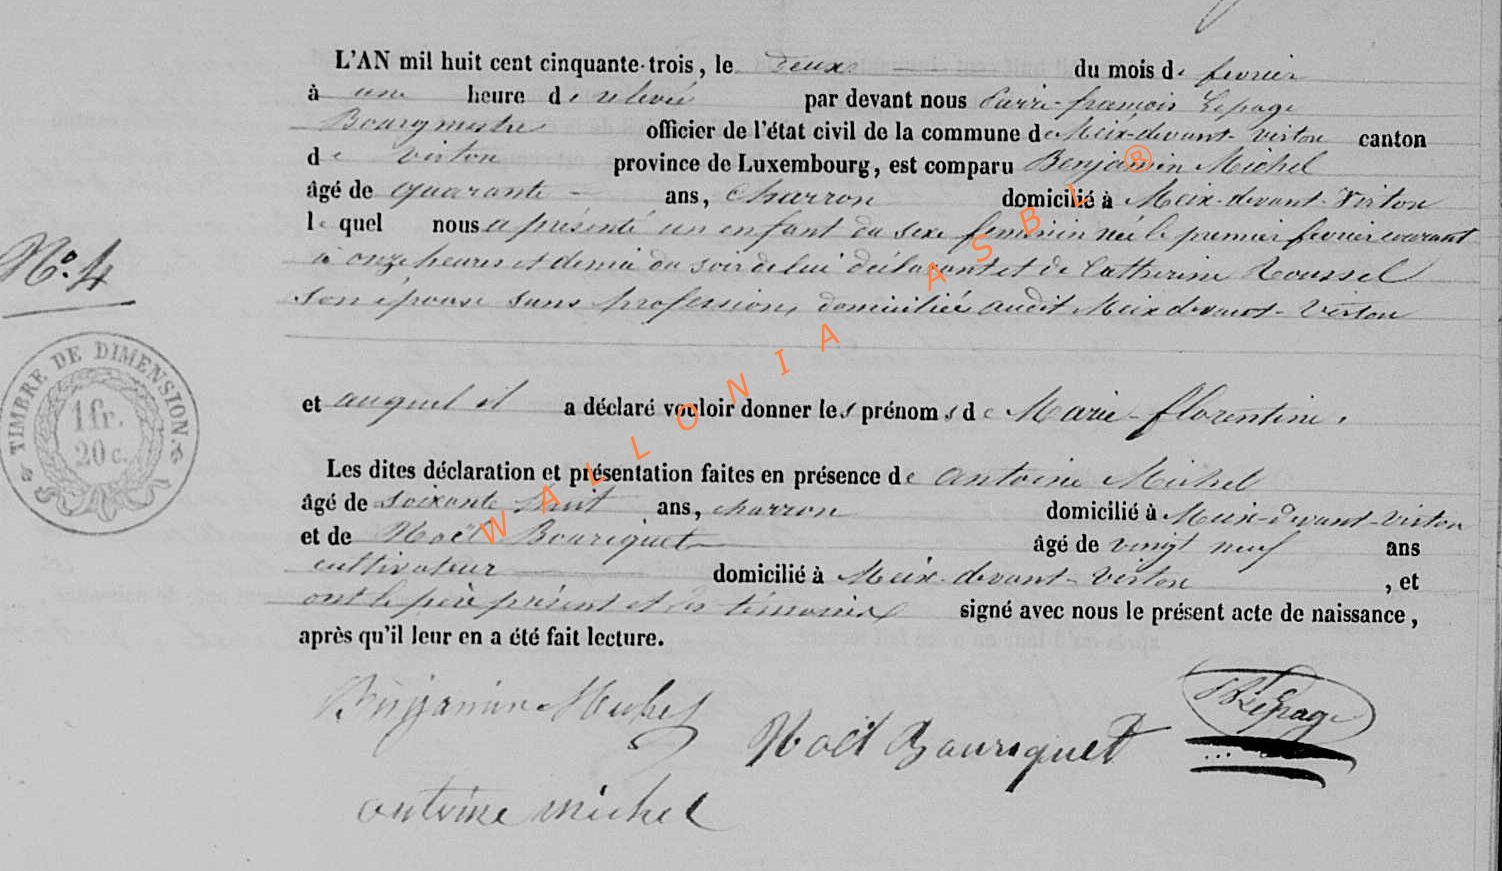 L'AN mil huit cent cinquante-trois, le deux du mois de fevrier
à une heure de relevée par devant nous Pierre-françois Lepage
Bourgmestre officier de l'état civil de la commune de Meix-devant-Virton canton
de Virton province de Luxembourg, est comparu Benjamin Michel
âgé de quarante ans, charron domicilié à Meix-devant-Virton
lequel nous a présenté un enfant du sexe feminin née le premier fevrier courant
à onze heures et demie du soir de lui déclarant et de Catherine Roussel
son épouse sans profession, domiciliée audit Meix devant-Virton
et auquel il a déclaré vouloir donner les prénoms de Marie-florentine.
Les dites déclaration et présentation faites en présence de Antoine Michel
âgé de soixante huit ans, charron domicilié à Meix-devant-Virton
et de Noël Bouriquet âgé de vingt neuf ans
cultivateur domicilié à Meix-devant-Virton, et
ont le père présent et les témoins signé avec nous le présent acte de naissance,
après qu'il leur en a été fait lecture.
No. 4
TIMBRE DE DIMENSION.
1 fr.
20 c.
Benjamin Michel
Noël Bouriquet
Lepage
antoine michel
WALLONIA ASBL ®